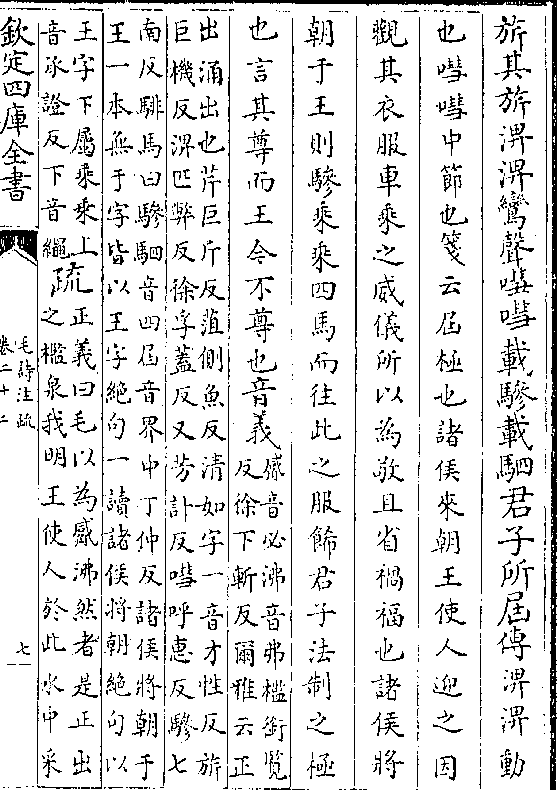 旂其旂淠淠鸞聲嘒嘒載驂載駟君子所屆傳淠淠動
也嘒嘒中節也箋云屆極也諸侯來朝王使人迎之因
觀其衣服車乘之威儀所以為敬且省禍福也諸侯將
朝于王則驂乘乘四馬而往此之服飾君子法制之極
也言其尊而王今不尊也音義觱音必沸音弗檻銜覽
反徐下斬反爾雅云正
出涌出也芹巨斤反菹側魚反清如字一音才性反旂
巨機反淠匹弊反徐孚蓋反又芳計反嘒呼惠反驂七
南反騑馬曰驂駟音四屆音界中丁仲反諸侯將朝于
王一本無于字皆以王字絶句一讀諸侯將朝絶句以
王字下屬乘乘上
音承證反下音繩
疏正義曰毛以為觱沸然者是正出
之檻泉我明王使人於此水中采
欽定四庫全書
毛詩注疏
卷二十二
七